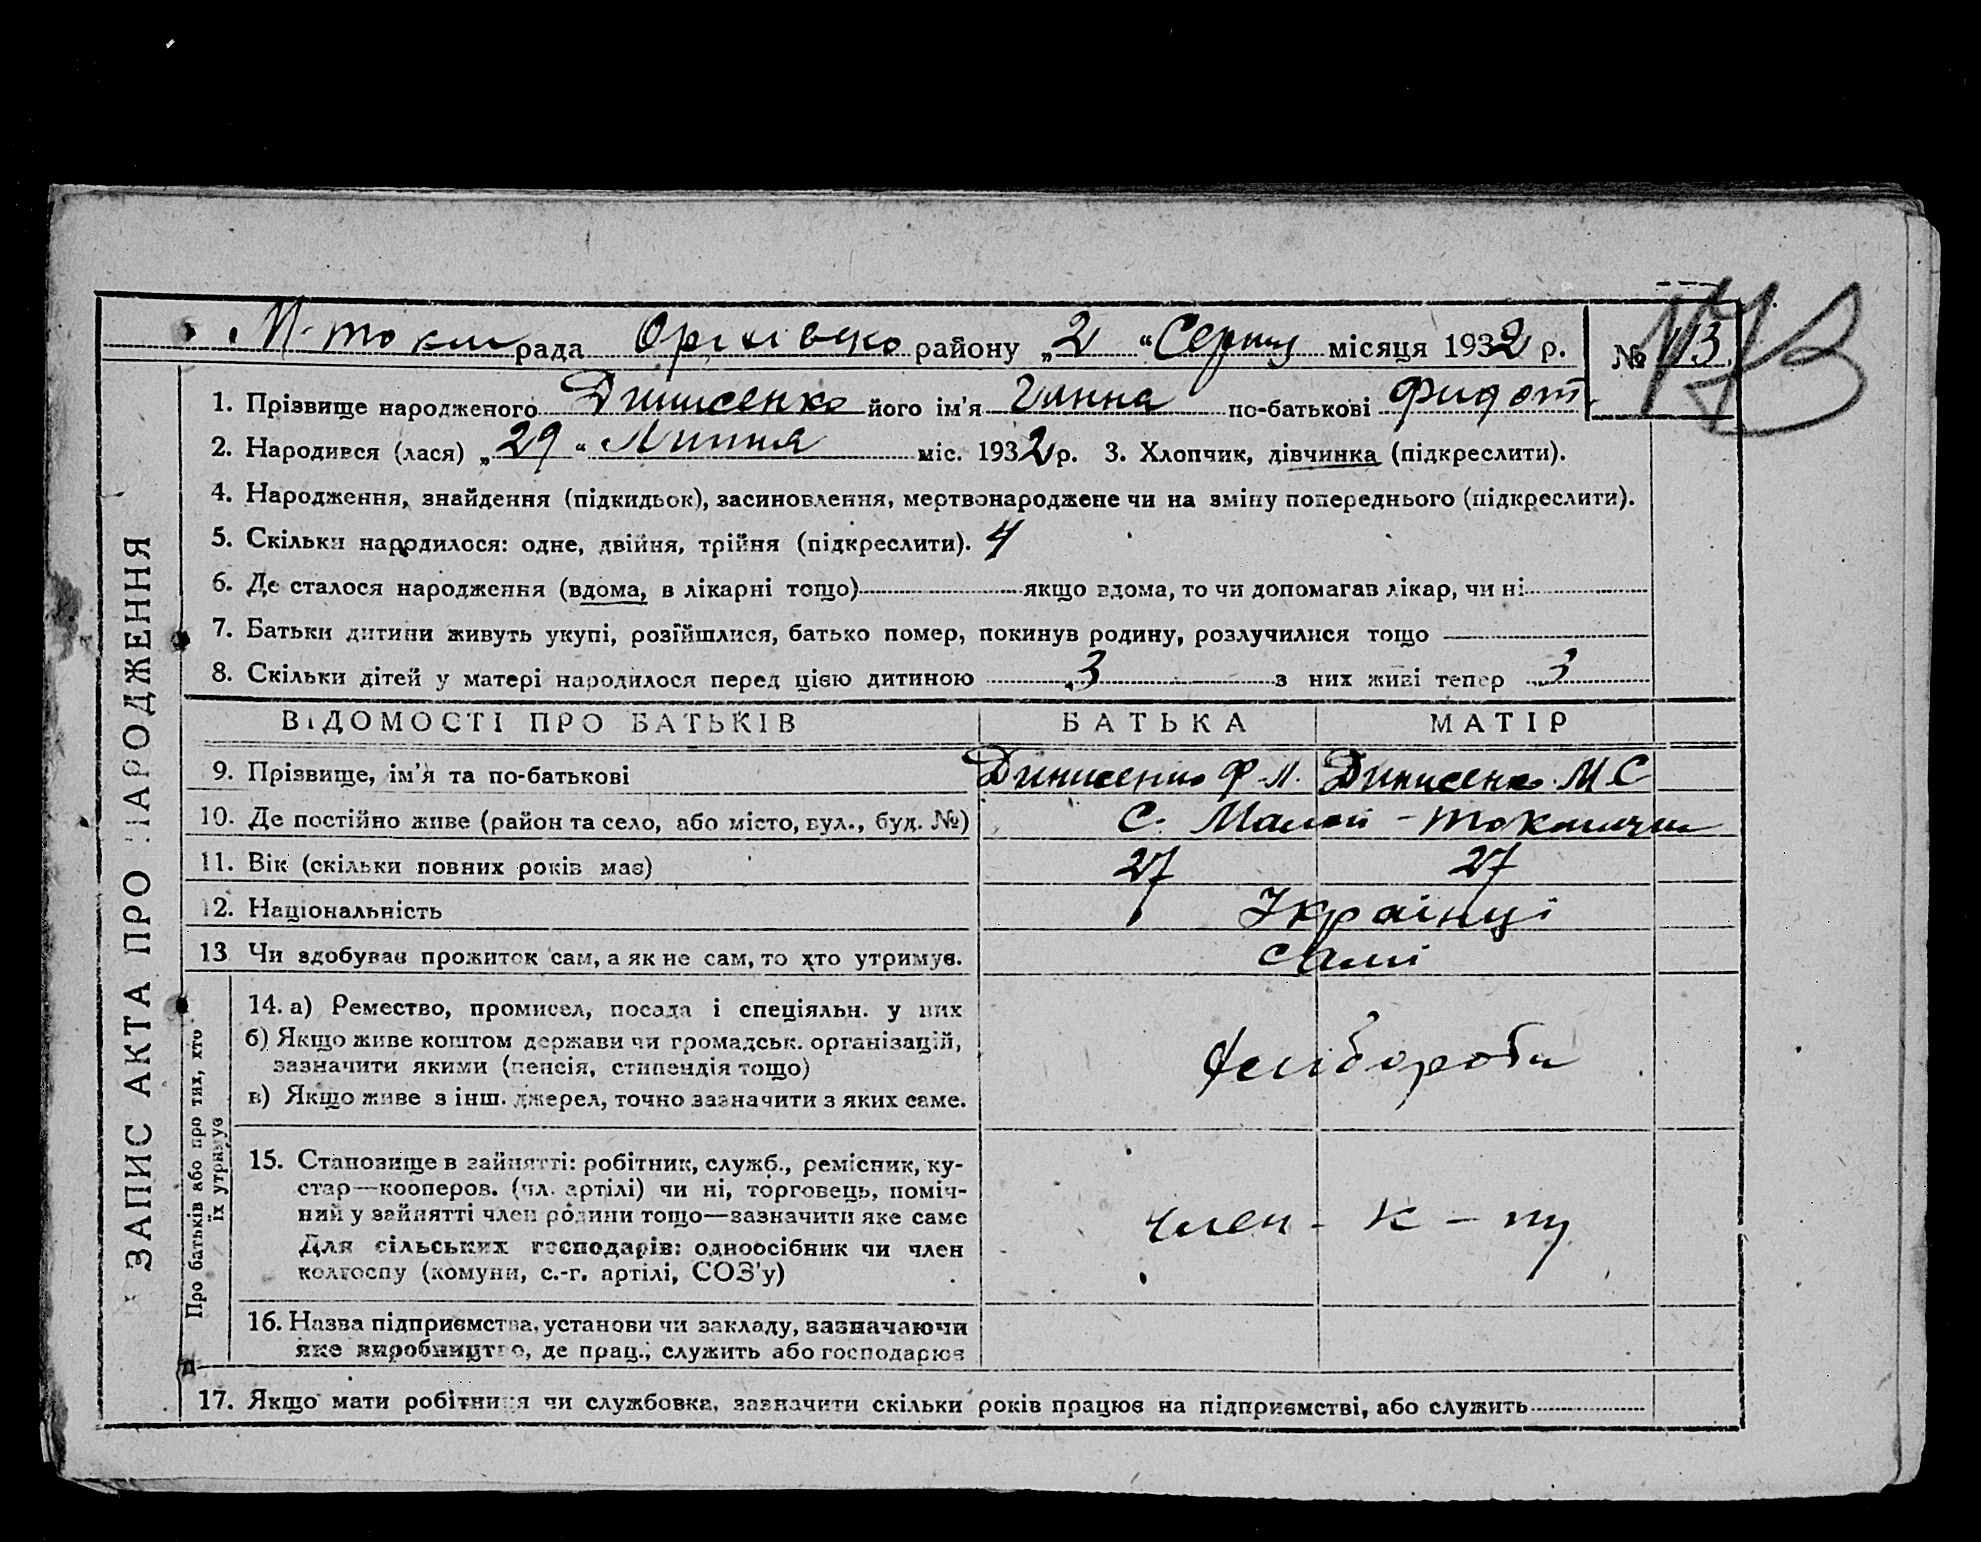 М-токм рада Оріхівсько району „2“ Серпня місяця 1932 р. № 113
173
1. Прізвище народженого Динисенко його ім'я Ганна по-батькові Фидот.
2. Народився (лася) „29“ Липня міс. 1932 р. 3. Хлопчик, дівчинка (підкреслити).
4. Народження, знайдення (підкидьок), засиновлення, мертвонароджене чи на зміну попереднього (підкреслити).
5. Скільки народилося: одне, двійня, трійня (підкреслити). 4
6. Де сталося народження (вдома, в лікарні тощо) якщо вдома, то чи допомагав лікар, чи ні:
7. Батьки дитини живуть укупі, розійшлися, батько помер, покинув родину, розлучилися тощо
8. Скільки дітей у матері народилося перед цією дитиною 3 з них живі тепер 3
ВІДОМОСТІ ПРО БАТЬКІВ БАТЬКА МАТІР
9. Прізвище, ім'я та по-батькові Динисенко Ф. Л. Динисенко М С
10. Де постійно живе (район та село, або місто, вул., буд. №) С. Малой-токмачки
11. Вік (скільки повних років має) 27 27
12. Національність Українці
13 Чи здобував прожиток сам, а як не сам, то хто утримує. сами
14. а) Ремество, промисел, посада і спеціяльн. у них
б) Якщо живе коштом держави чи громадськ. організацій,
зазначити якими (пенсія, стипендія тощо)
в) Якщо живе з інш. джерел, точно зазначити з яких саме.
Хлібороби
15. Становище в зайнятті: робітник, служб., ремісник, ку-
стар—кооперов. (чл. артілі) чи ні, торговець, поміч-
ний у зайнятті член родини тощо—зазначити яке саме
Для сільських господарів: одноосібник чи член
колгоспу (комуни, с.-г. артілі, СОЗ'у)
член - к - пу
16. Назва підприємства, установи чи закладу, зазначаючи
яке виробництво, де прац., служить або господарює
17. Якщо мати робітниця чи службовка, зазначити скільки років працює на підприємстві, або служить
ЗАПИС АКТА ПРО НАРОДЖЕННЯ
Про батьків або про тих, хто
їх утримує